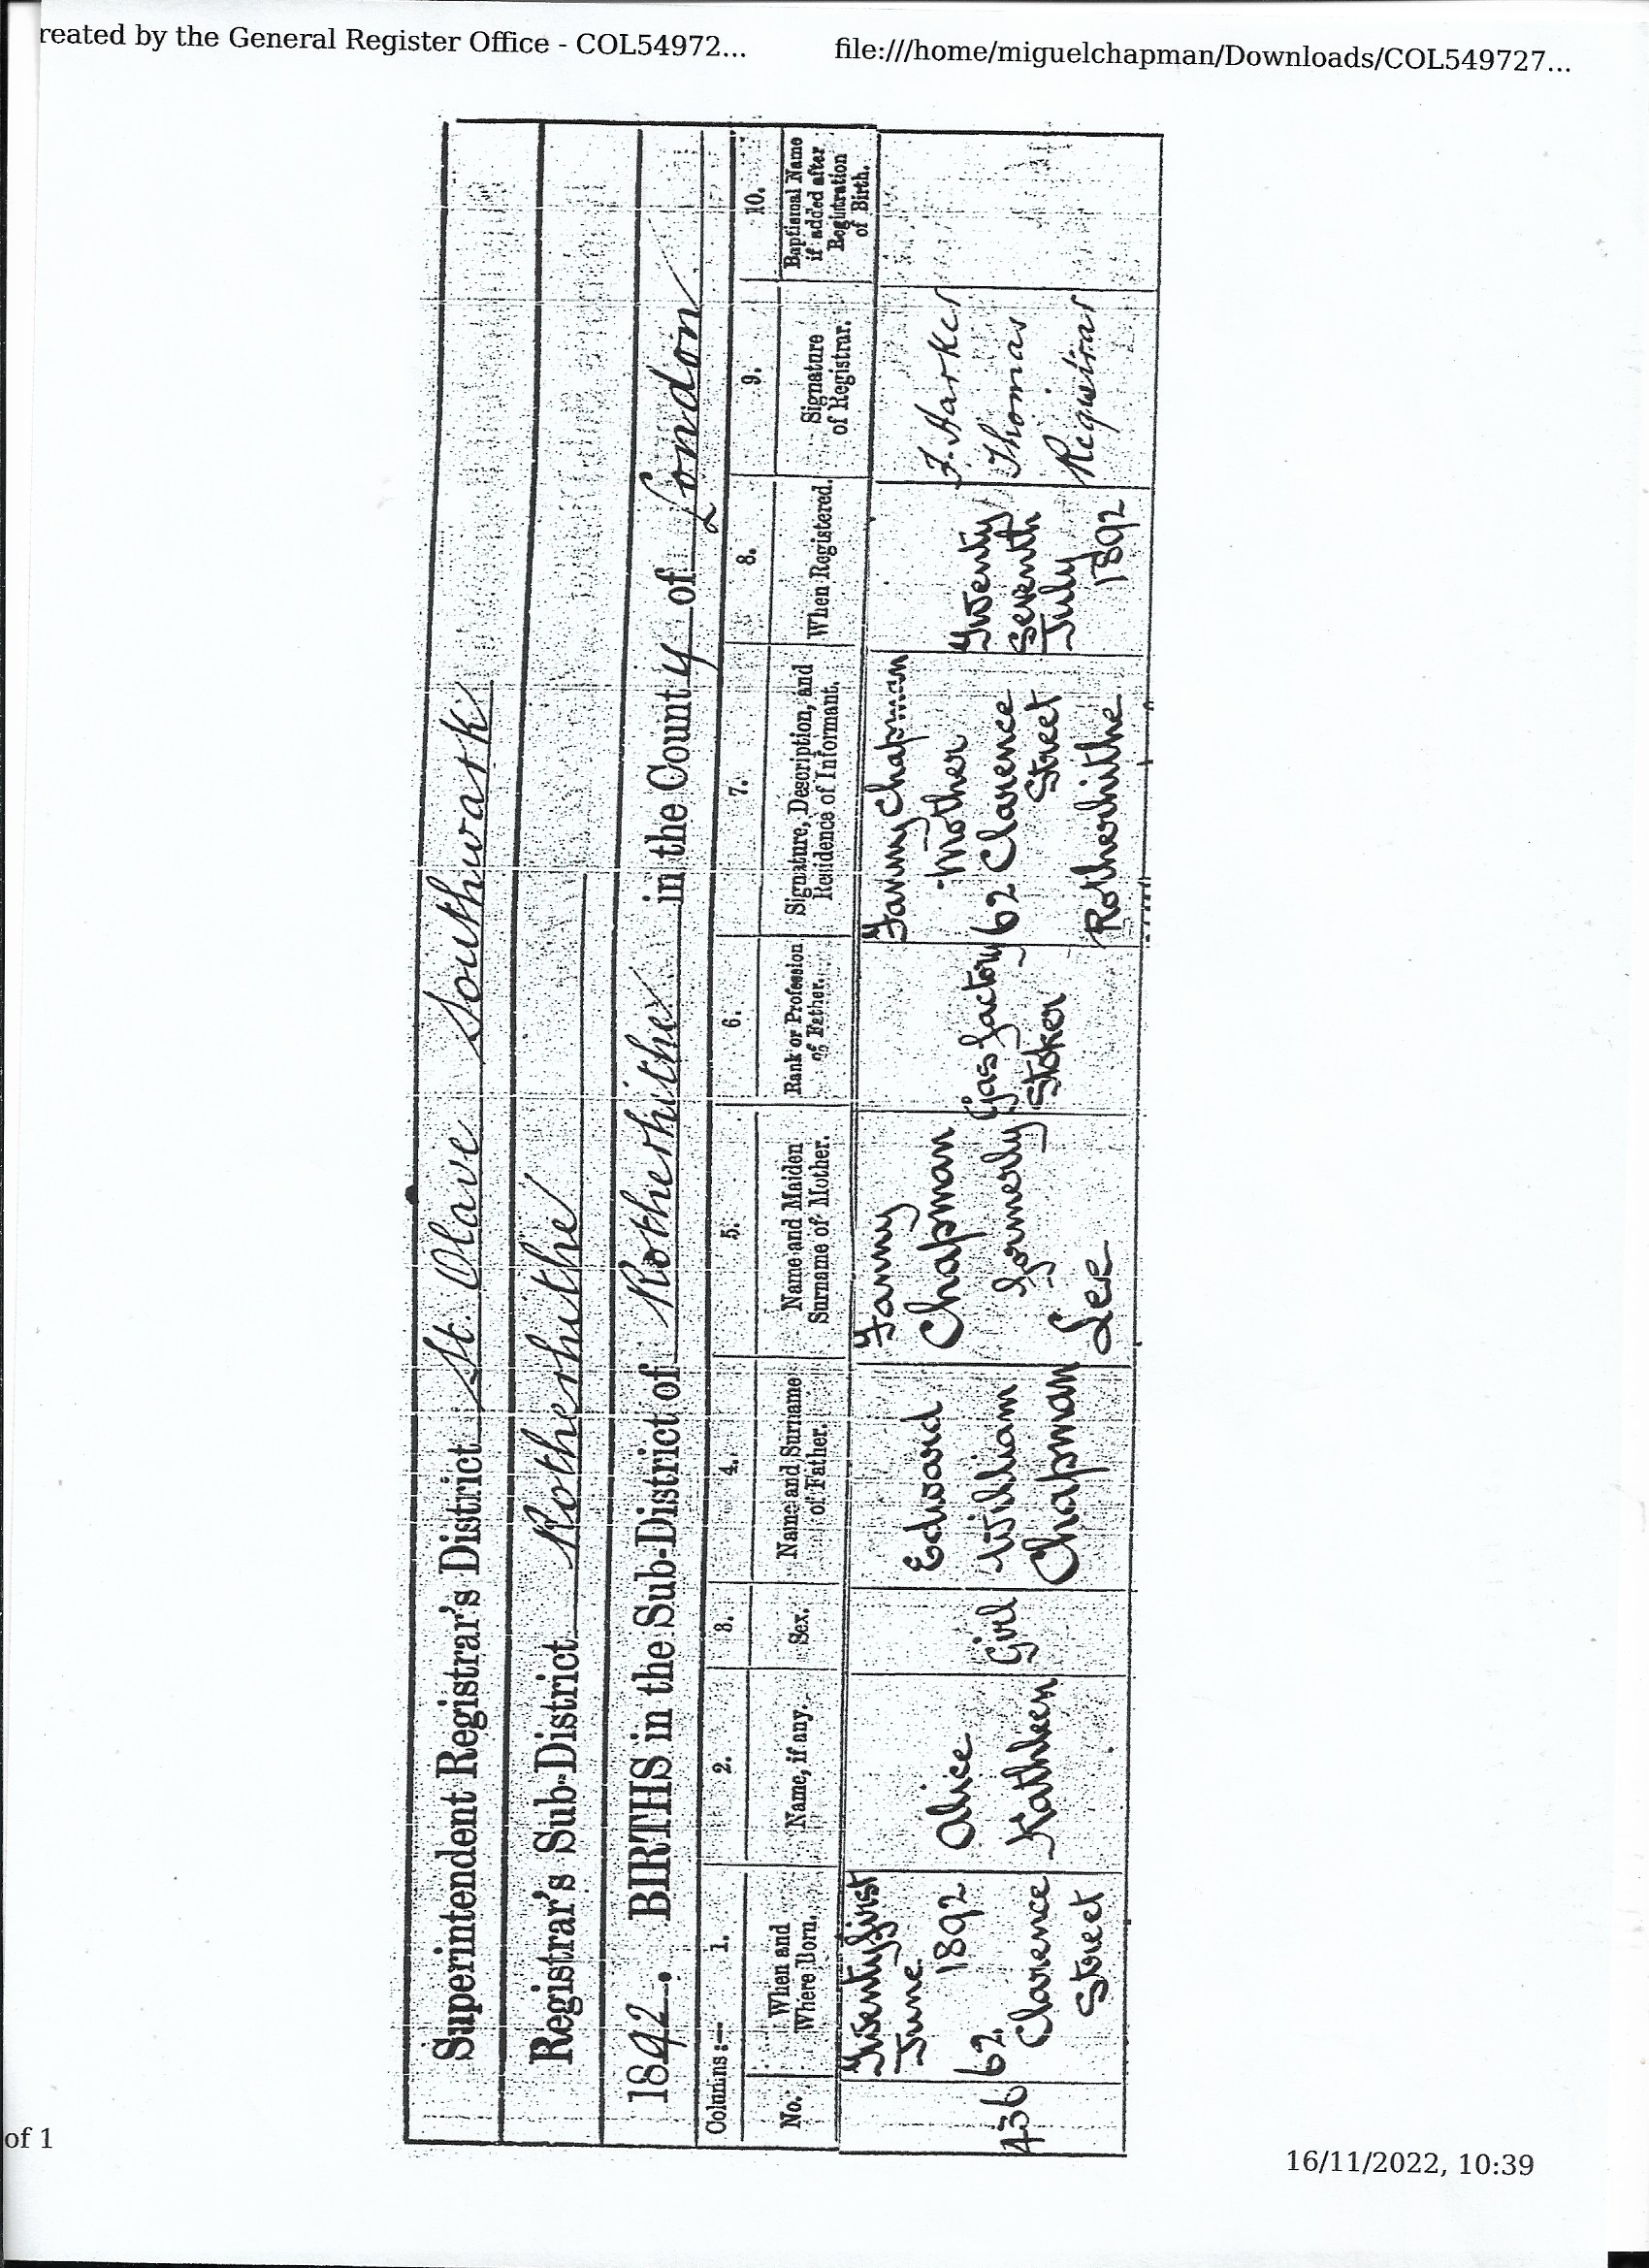 reated by the General Register Office - COL54972...
file:///home/miguelchapman/Downloads/COL549727...
Superintendent Registrar's District St. Olave Southwark
Registrar's Sub-District Rotherhithe
1892. BIRTHS in the Sub-District of Rotherhithe in the County of London
Columns:— 1. 2. 3. 4. 5. 6. 7. 8. 9. 10.
No.
When and
Where Born.
Name, if any.
Sex.
Name and Surname
of Father.
Name and Maiden
Surname of Mother.
Rank or Profession
of Father.
Signature, Description, and
Residence of Informant.
When Registered.
Signature
of Registrar.
Baptismal Name
if added after
Registration
of Birth.
436
Twenty first
June
1892
62
Clarence
Street
Alice
Kathleen
Girl
Edward
William
Chapman
Fanny
Chapman
formerly
Lee
Gas factory
Stoker
Fanny Chapman
Mother
62 Clarence
Street
Rotherhithe
Twenty
Seventh
July
1892
F. Harker
Thomas
Registrar
of 1
16/11/2022, 10:39